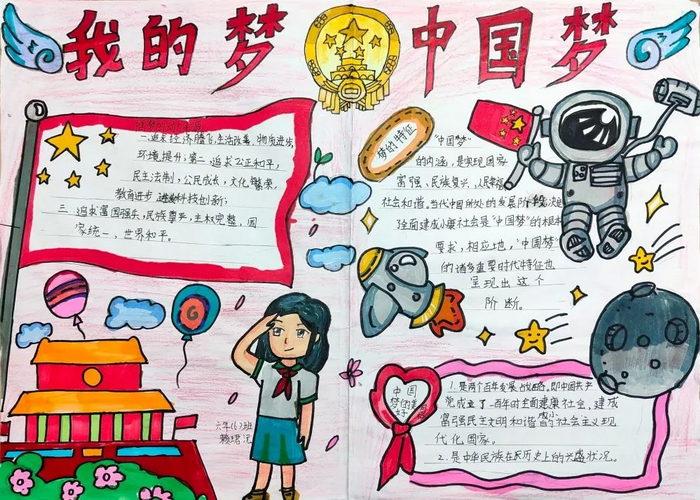 我的梦 中国梦
一追求经济腾飞,生活改善,物质进步,
环境提升;第二追求公正和平,
民主法制,公民成长,文化繁荣,
教育进步 科技创新;
三、追求富国强兵,民族尊严,主权完整,国
家统一,世界和平。
六年(6)班
梦的特征
“中国梦”
的内涵,是实现国家
富强、民族复兴、人民幸福
社会和谐。当代中国所处的发展阶段,决定
了全面建成小康社会是“中国梦”的根本
要求,相应地,“中国梦”
的诸多重要时代特征也
呈现出这个
阶断。
中国
梦
1.是两个百年发展战略,即中国共产
党成立了一百年时全面建康社会,建成
富强民主文明和谐的社会主义现
代化国家。
2.是中华民族在历史上的兴盛状况。